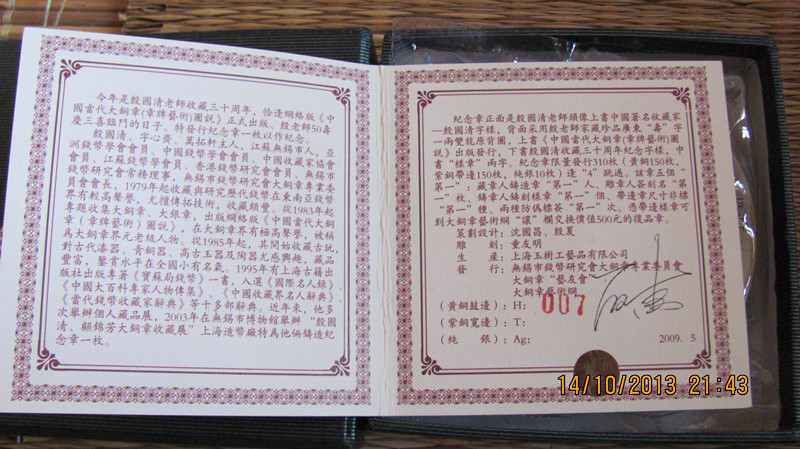 今年是殷國清老師收藏三十周年，恰逢網絡版《中
國當代大銅章(章牌藝術)圖説》正式出版、殷老師50壽
慶三喜臨門的日子。特發行紀念章一枚以作紀念。
殷國清、字心齋、萬拓軒主人，江蘇無錫市人，亞
洲錢幣學會會員、中國錢幣學會會員、中國收藏家協會
會員、江蘇錢幣學會會員、香港錢幣研究會會員、無錫
市錢幣研究會常務理事，無錫市錢幣研究會大銅章專業委
員會會長，1979年起收藏與研究歷代錢幣在東南亞錢幣
界有較高聲譽，尤擅傳拓技術，收藏頗豐。從1983年起
專題收集大銅章、大銀章，出版網絡版《中國當代大銅
章（章牌藝術）圖説》，在大銅章界有極高聲譽，被稱
爲大銅章界元老級人物。從1985年起，其開始收藏古玩，
對古代漆器、青銅器、高古玉器及陶器尤感興趣，藏品
豐富，鑒賞水午在全國小有名氣。1995年有上海古籍出
版社出版專著《寶蘇局錢幣》一書，入選《國際名人録》
《中國大百科專家人物傳集》、《中國收藏界名人辭典》、
《當代錢幣收藏家辭典》等十多部辭典。近年來，他多
次舉辦個人藏品展，2003年在無錫市博物館舉辦“殷國
清、顧錦芳大銅章收藏展”上海造幣廠特爲他倆鑄造紀
念章一枚。
紀念章正面是殷國清老師頭像上書中國著名收藏家
—殷國清字樣，背面采用殷老師家藏珍品廣東“壽”字
一兩雙龍原背圖，上書《中國當代大銅章(章牌藝術)圖
説》出版發行，下書殷國清收藏三十周年紀念字樣，中
書“樣章”兩字。紀念章限量發行310枚（黄銅150枚，
紫銅帶邊150枚，純銀10枚）逢“4”跳過。該章五個“
第一”：藏章人鑄造章“第一”人、雕章人簽刻名“第
一”枚、鑄章人鑄刻樣章“第一”個、帶邊章尺寸非標
“第一”種、兩種防僞標簽“第一”次。憑帶邊樣章可
到大銅章藝術網“讓”欄交换價值500元的復品章。
策劃設計：沈國昌、殷夏
雕　　刻：童友明
生　　産：上海玉樹工藝品有限公司
發　　行：無錫市錢幣研究會大銅章專業委員會
大銅章“藝友會”
大銅章藝術網
(黄銅鼓邊)：H： 007
(紫銅寬邊)：T：
(純　　銀)：Ag： 2009．5
14/10/2013 21:43